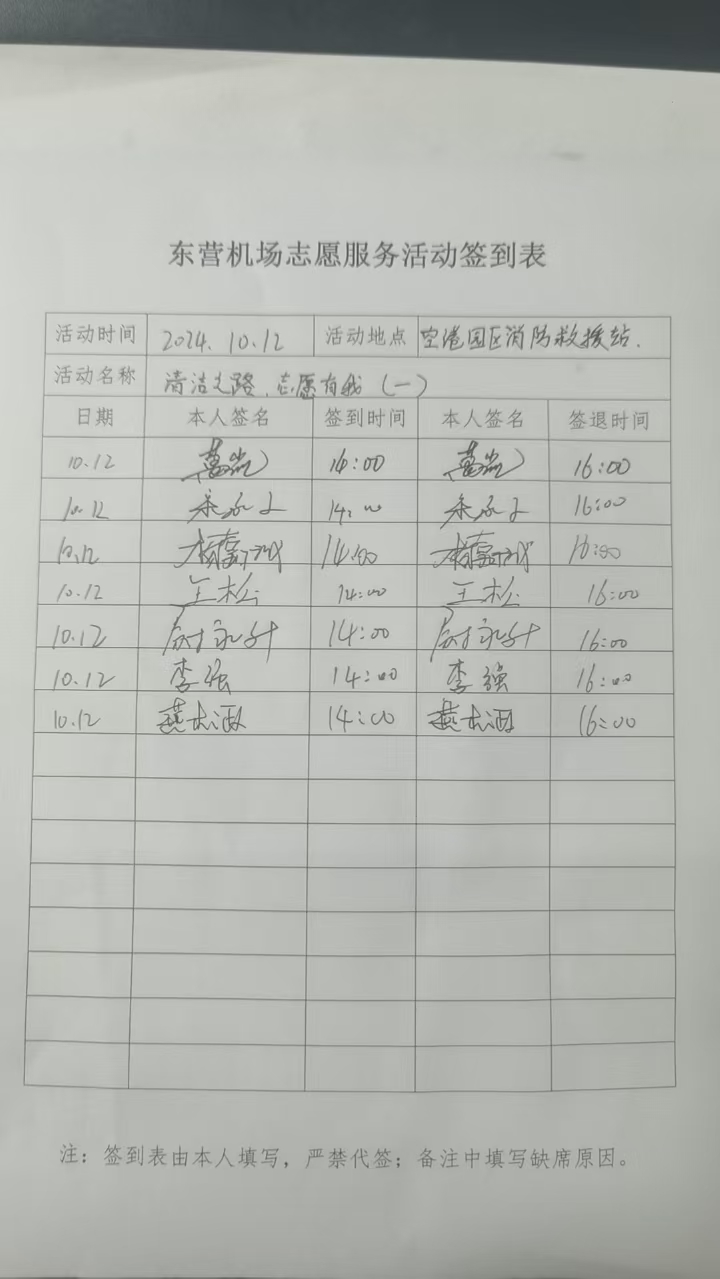 东营机场志愿服务活动签到表
活动时间 2024.10.12 活动地点 空港园区消防救援站.
活动名称 清洁之路.志愿有我(一)
日期 本人签名 签到时间 本人签名 签退时间
10.12 14:00 16:00
10.12 14:00 16:00
10.12 14:00 16:00
10.12 王松 14:00 王松 16:00
10.12 14:00 16:00
10.12 李强 14:00 李强 16:00
10.12 14:00 16:00
注：签到表由本人填写，严禁代签；备注中填写缺席原因。